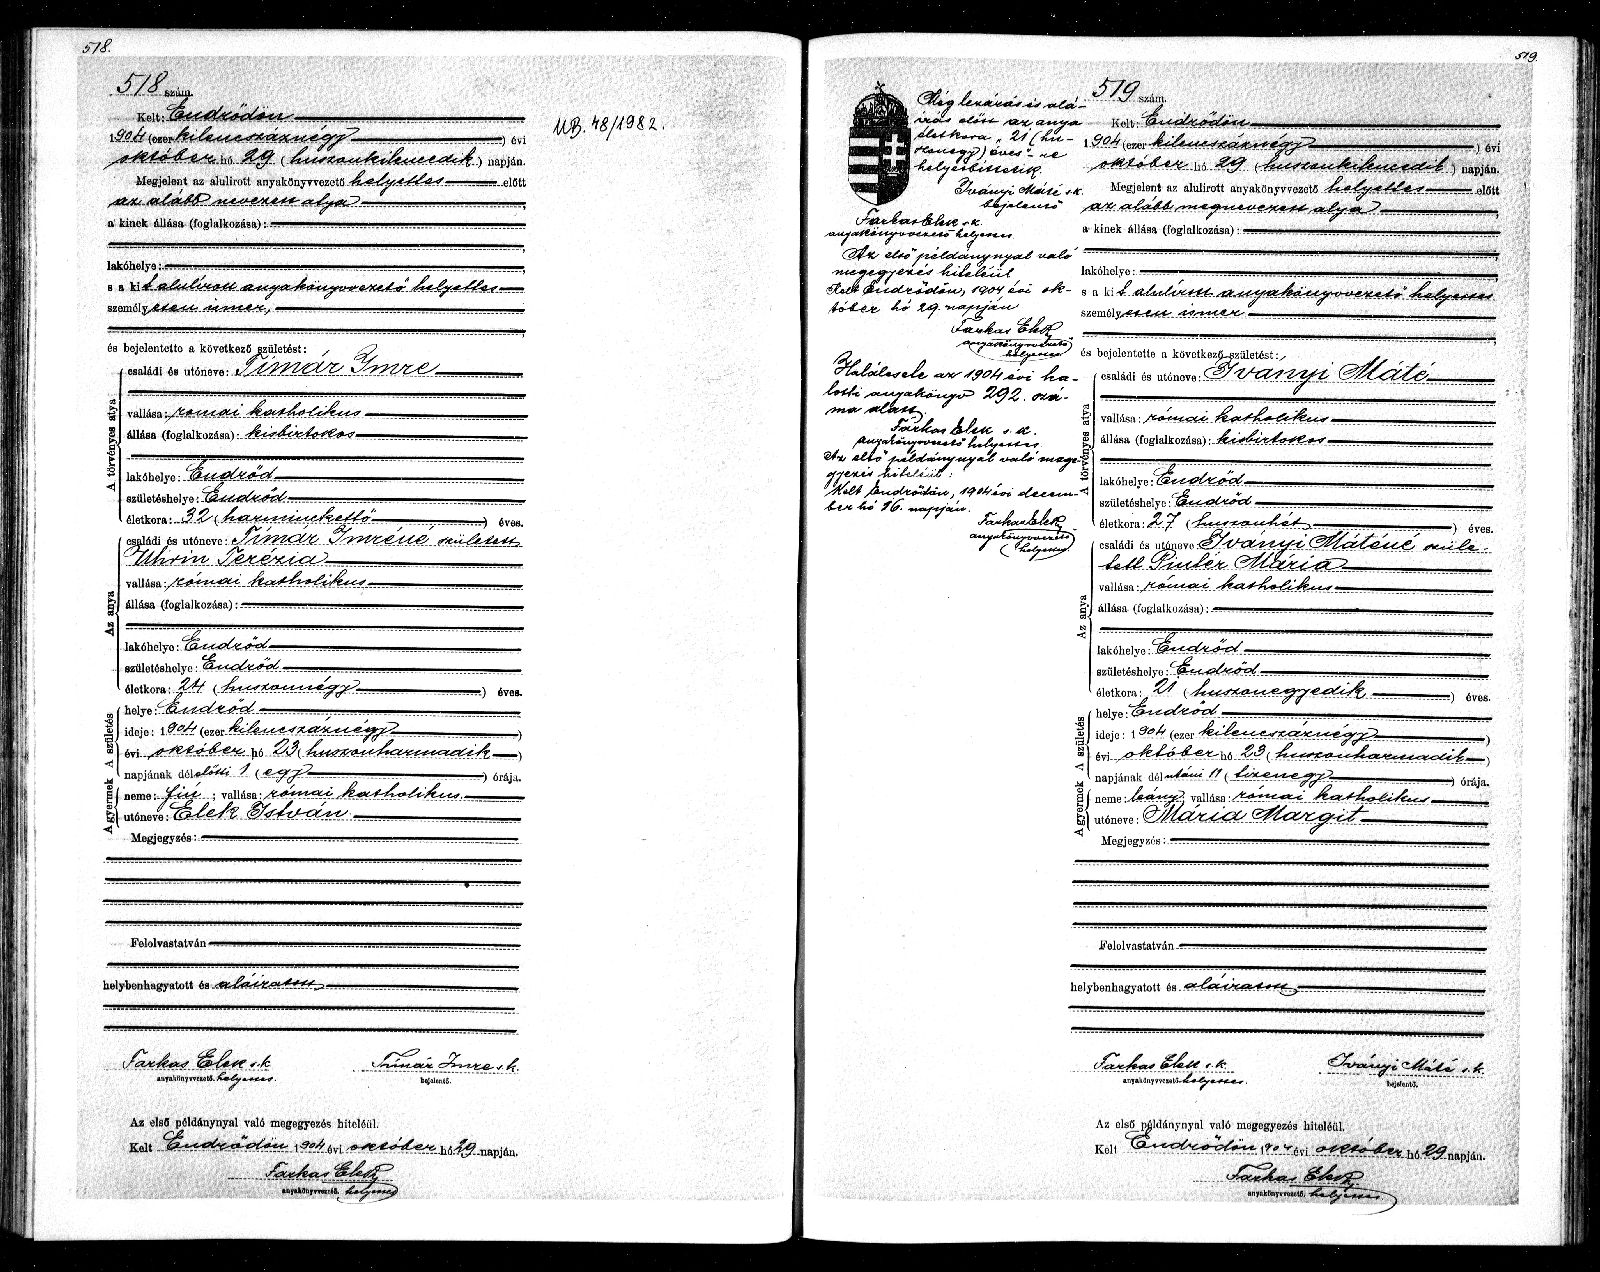 518.
518 szám.
Kelt: Endrődön
1904 (ezer kilencszáznégy) évi
október hó 29 (huszonkilencedik) napján.
Megjelent az alulirott anyakönyvvezető helyettes előtt
az alább nevezett atya
a kinek állása (foglalkozása):
lakóhelye:
s a kit alulírott anyakönyvvezető helyettes
személyesen ismer,
és bejelentette a következő születést:
A törvényes atya
családi és utóneve: Tímár Imre
vallása: római katholikus
állása (foglalkozása): kisbirtokos
lakóhelye: Endrőd
születéshelye: Endrőd
életkora: 32 (harminckettő) éves.
Az anya
családi és utóneve: Tímár Imréné született
Uhrin Terézia
vallása: római katholikus
állása (foglalkozása):
lakóhelye: Endrőd
születéshelye: Endrőd
életkora: 24 (huszonnégy) éves.
A születés
helye: Endrőd
ideje: 1904 (ezer kilencszáznégy)
évi október hó 23 (huszonharmadik)
napjának délelőtti 1 (egy) órája.
A gyermek
neme: fiú; vallása: római katholikus
utóneve: Elek István
Megjegyzés:
Felolvastatván
helybenhagyatott és aláiratott
Farkas Elek s.k. Tímár Imre s.k.
anyakönyvvezető. helyettes. bejelentő.
Az első példánynyal való megegyezés hiteléül.
Kelt Endrődön 1904 évi október hó 29 napján.
Farkas Elek
anyakönyvvezető. helyettes
MB. 48/1982.
519.
Még lezárás és alá-
írás előtt az anya
életkora "21 (hu-
szonegy) éves"-re
helyesbittetik.
Iványi Máté s.k.
bejelentő
Farkas Elek s.k.
anyakönyvvezető helyettes
Az első példánynyal való
megegyezés hiteléül
Kelt Endrődön, 1904 évi ok-
tóber hó 29. napján
Farkas Elek
anyakönyvvezető
helyettes
Halálesete az 1904 évi ha-
lotti anyakönyv 292. szá-
ma alatt.
Farkas Elek s.k.
anyakönyvvezető helyettes
Az első példánynyal való mege-
gyezés hiteléül:
Kelt Endrődön, 1904 évi decem-
ber hó 16. napján.
Farkas Elek
anyakönyvvezető
helyettes
519 szám.
Kelt: Endrődön
1904 (ezer kilencszáznégy) évi
október hó 29 (huszonkilencedik) napján.
Megjelent az alulirott anyakönyvvezető helyettes előtt
az alább megnevezett atya
a kinek állása (foglalkozása):
lakóhelye:
s a kit alulírott anyakönyvvezető helyettes
személyesen ismer
és bejelentette a következő születést:
A törvényes atya
családi és utóneve: Iványi Máté
vallása: római katholikus
állása (foglalkozása): kisbirtokos
lakóhelye: Endrőd
születéshelye: Endrőd
életkora: 27 (huszonhét) éves.
Az anya
családi és utóneve: Iványi Máténé szüle-
tett Pintér Mária
vallása: római katholikus
állása (foglalkozása):
lakóhelye: Endrőd
születéshelye: Endrőd
életkora: 21 (huszonegyedik) éves.
A születés
helye: Endrőd
ideje: 1904 (ezer kilencszáznégy)
évi október hó 23 (huszonharmadik)
napjának délutáni 11 (tizenegy) órája.
A gyermek
neme: leány; vallása: római katholikus
utóneve: Mária Margit
Megjegyzés:
Felolvastatván
helybenhagyatott és aláiratott
Farkas Elek s.k. Iványi Máté s.k.
anyakönyvvezető. helyettes. bejelentő.
Az első példánynyal való megegyezés hiteléül.
Kelt Endrődön 1904 évi október hó 29 napján.
Farkas Elek
anyakönyvvezető. helyettes